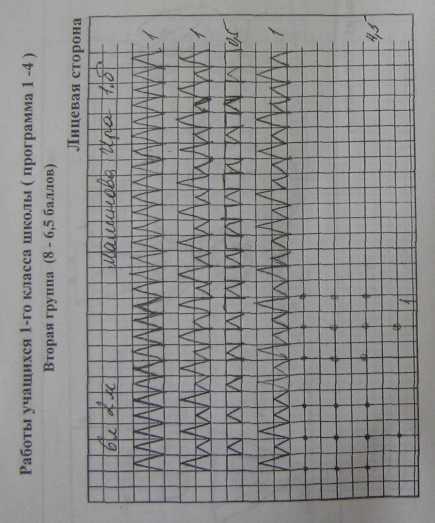 Работы учащихся 1-го класса школы ( программа 1 -4 )
Вторая группа (8 - 6,5 баллов)
Лицевая сторона
6л 2м Малинова Ира 1.б
1
1
0,5
1
4,5
1